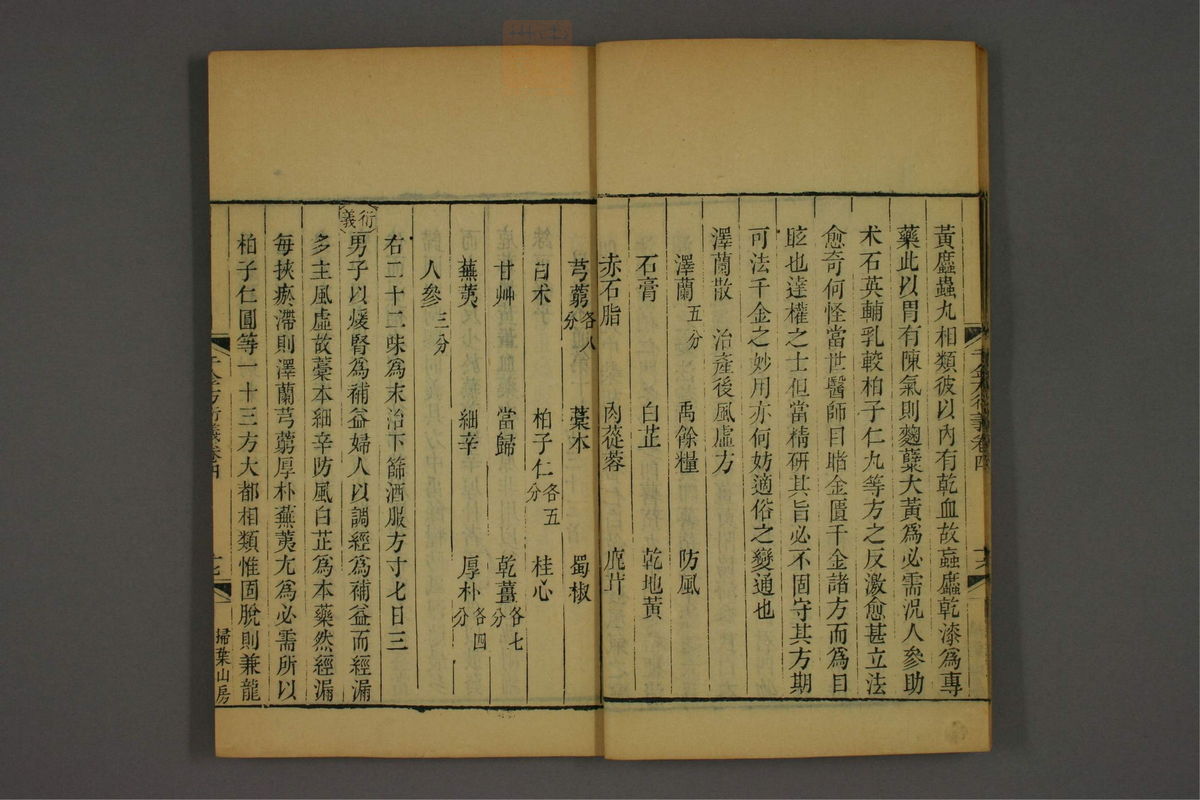 黃䗪蟲丸相類彼以內有乾血故蝱䗪乾漆爲專
藥此以胃有陳氣則麴蘗大黃爲必需況人參助
术石英輔乳較柏子仁丸等方之反激愈甚立法
愈奇何怪當世醫師目睹金匱千金諸方而爲目
眩也達權之士但當精研其旨必不固守其方期
可法千金之妙用亦何妨適俗之變通也
澤蘭散 治產後風虛方
澤蘭五分 禹餘糧 防風
石膏 白芷 乾地黃
赤石脂 肉蓯蓉 鹿茸
芎藭各八分 藁本 蜀椒
白术 柏子仁各五分 桂心
甘艸 當歸 乾薑各七分
蕪荑 細辛 厚朴各四分
人參三分
右二十二味爲末治下篩酒服方寸七日三
衍義男子以煖腎爲補益婦人以調經爲補益而經漏
多主風虛故藁本細辛防風白芷爲本藥然經漏
每挾瘀滯則澤蘭芎藭厚朴蕪荑尢爲必需所以
柏子仁圓等一十三方大都相類惟固脫則兼龍
千金方衍義卷四
掃葉山房